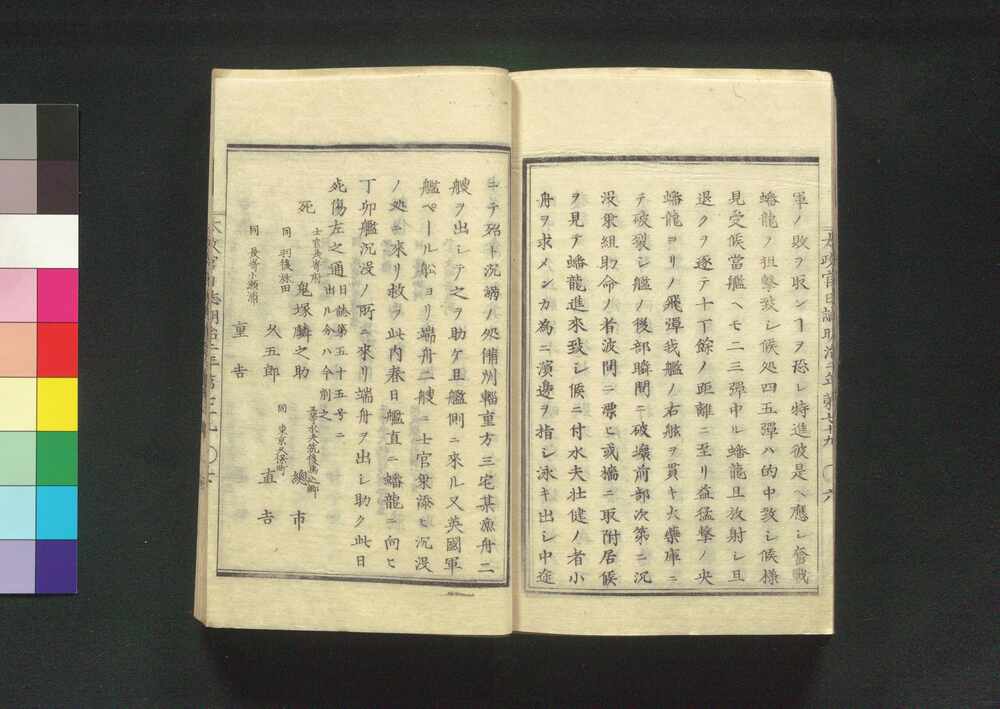 軍ノ敗ヲ取ンヿヲ恐レ特進彼是ヘ應シ奮戰
蟠龍ノ狙撃致シ候処四五彈ハ的中致シ候様
見受候當艦ヘモ二三彈中ル蟠龍且放射シ且
退クヲ逐テ十丁餘ノ距離ニ至リ益猛撃ノ央
蟠龍ヨリノ飛彈我艦ノ右舷ヲ貫キ火藥庫ニ
テ破裂シ艦ノ後部瞬間ニ破壊前部次第ニ沉
没衆組助命ノ者波間ニ漂ヒ或檣ニ取附居候
ヲ見テ蟠龍進來致シ候ニ付水夫壮健ノ者小
舟ヲ求メンカ為ニ濱邊ヲ指シ泳キ出シ中途
太政官日誌明治二年第七十九 六
ニテ殆ト沉溺ノ処備州輜重方三宅某漁舟二
艘ヲ出シテ之ヲ助ケ且艦側ニ來ル又英國軍
艦ペール舩ヨリ端舟二艘ニ士官衆添ヒ沉没
ノ処ニ來リ救フ此内春日艦直ニ蟠龍ニ向ヒ
丁卯艦沉没ノ所ニ來リ端舟ヲ出シ助ク此日
死傷左之通 日誌第五十五号ニ出ル分ハ今削之
死
士官長嵜府 鬼塚麟之助
同 羽後秋田 久五郎
同 長嵜小瀬浦 重吉
總市
同 東京 直吉
太政官日誌明治二年第七十九 七